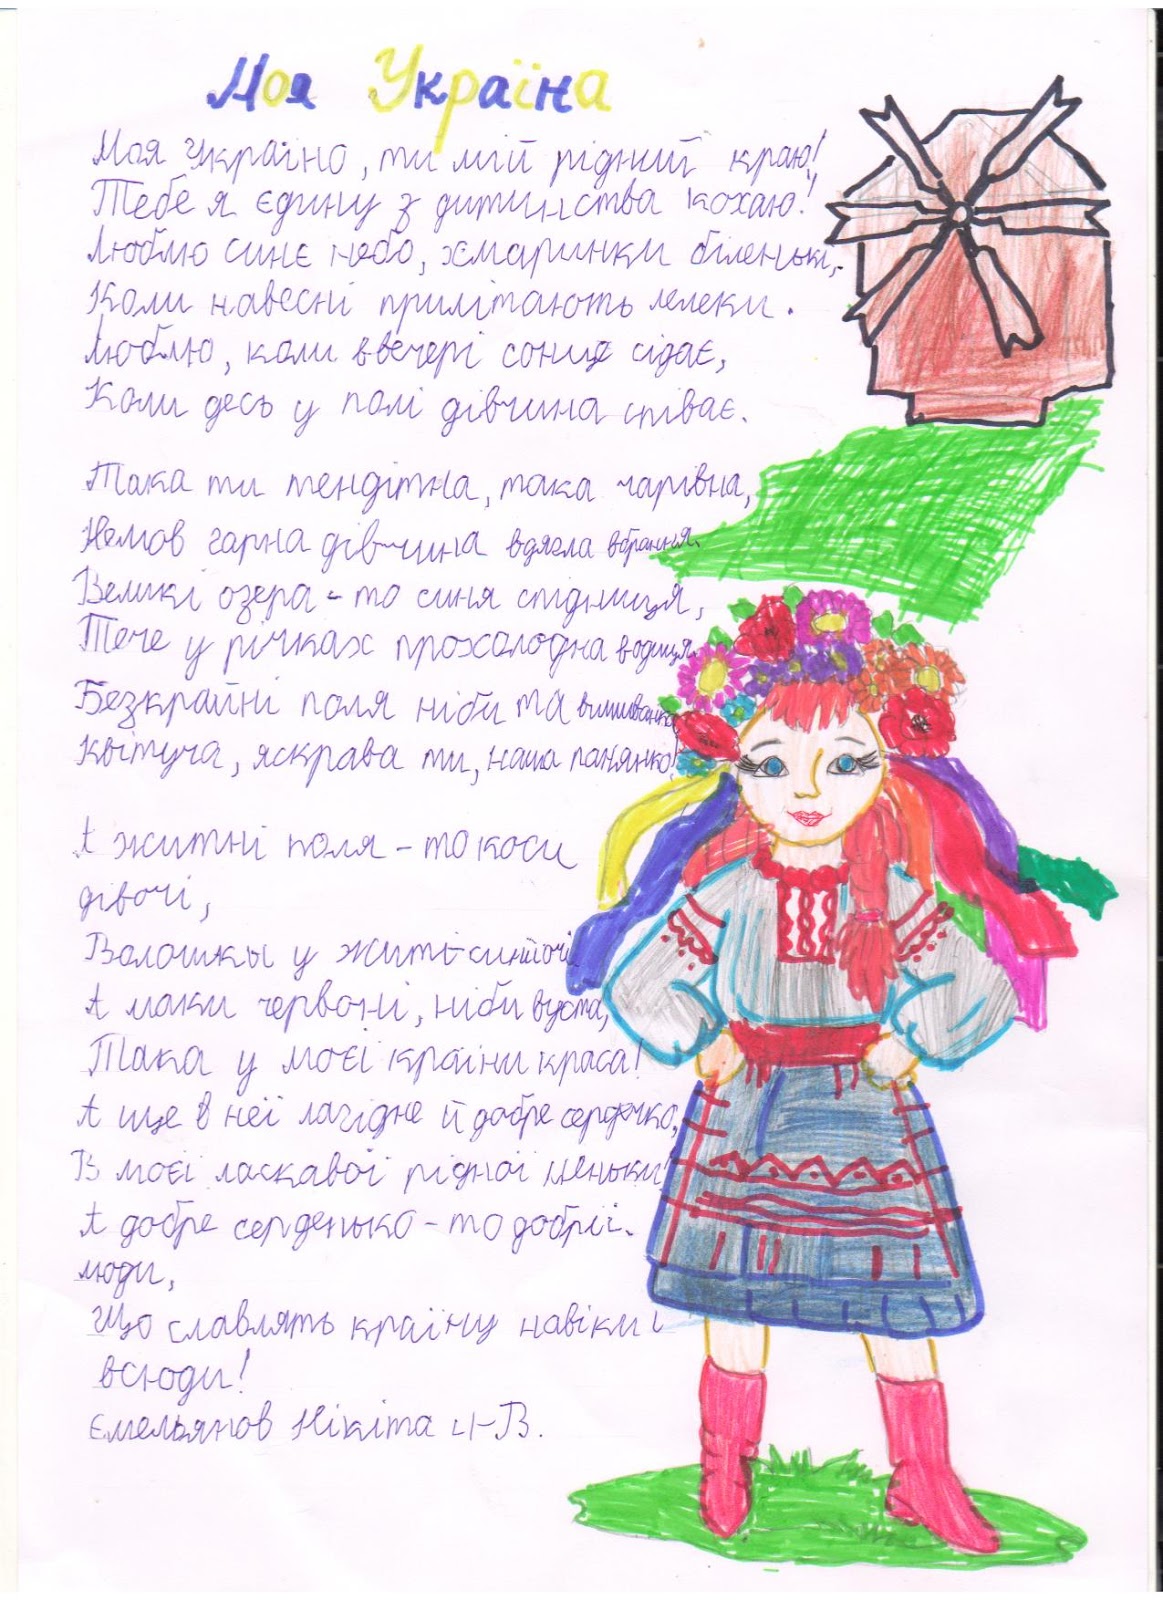 Моя Україна
Моя Україно, ти мій рідний краю!
Тебе я єдину з дитинства кохаю!
Люблю синє небо, хмаринки біленькі,
Коли навесні прилітають лелеки.
Люблю, коли ввечері сонце сідає,
Коли десь у полі дівчина співає.
Така ти тендітна, така чарівна,
Немов гарна дівчина вдягла вбрання.
Великі озера - то синя спідниця,
Тече у річках прохолодна водиця.
Безкрайні поля ніби та вишиванка
Квітуча, яскрава ти, наша панянко!
А житні поля - то коси
дівочі,
Волошкы у житі - сині очі
А маки червоні, ніби вуста,
Така у моєї країни краса!
А ще в неї лагідне й добре сердечко,
В моєї ласкавої рідної неньки!
А добре серденько - то добрії
люди,
Що славлять країну навіки і
всюди!
Ємельянов Нікіта 4-В.